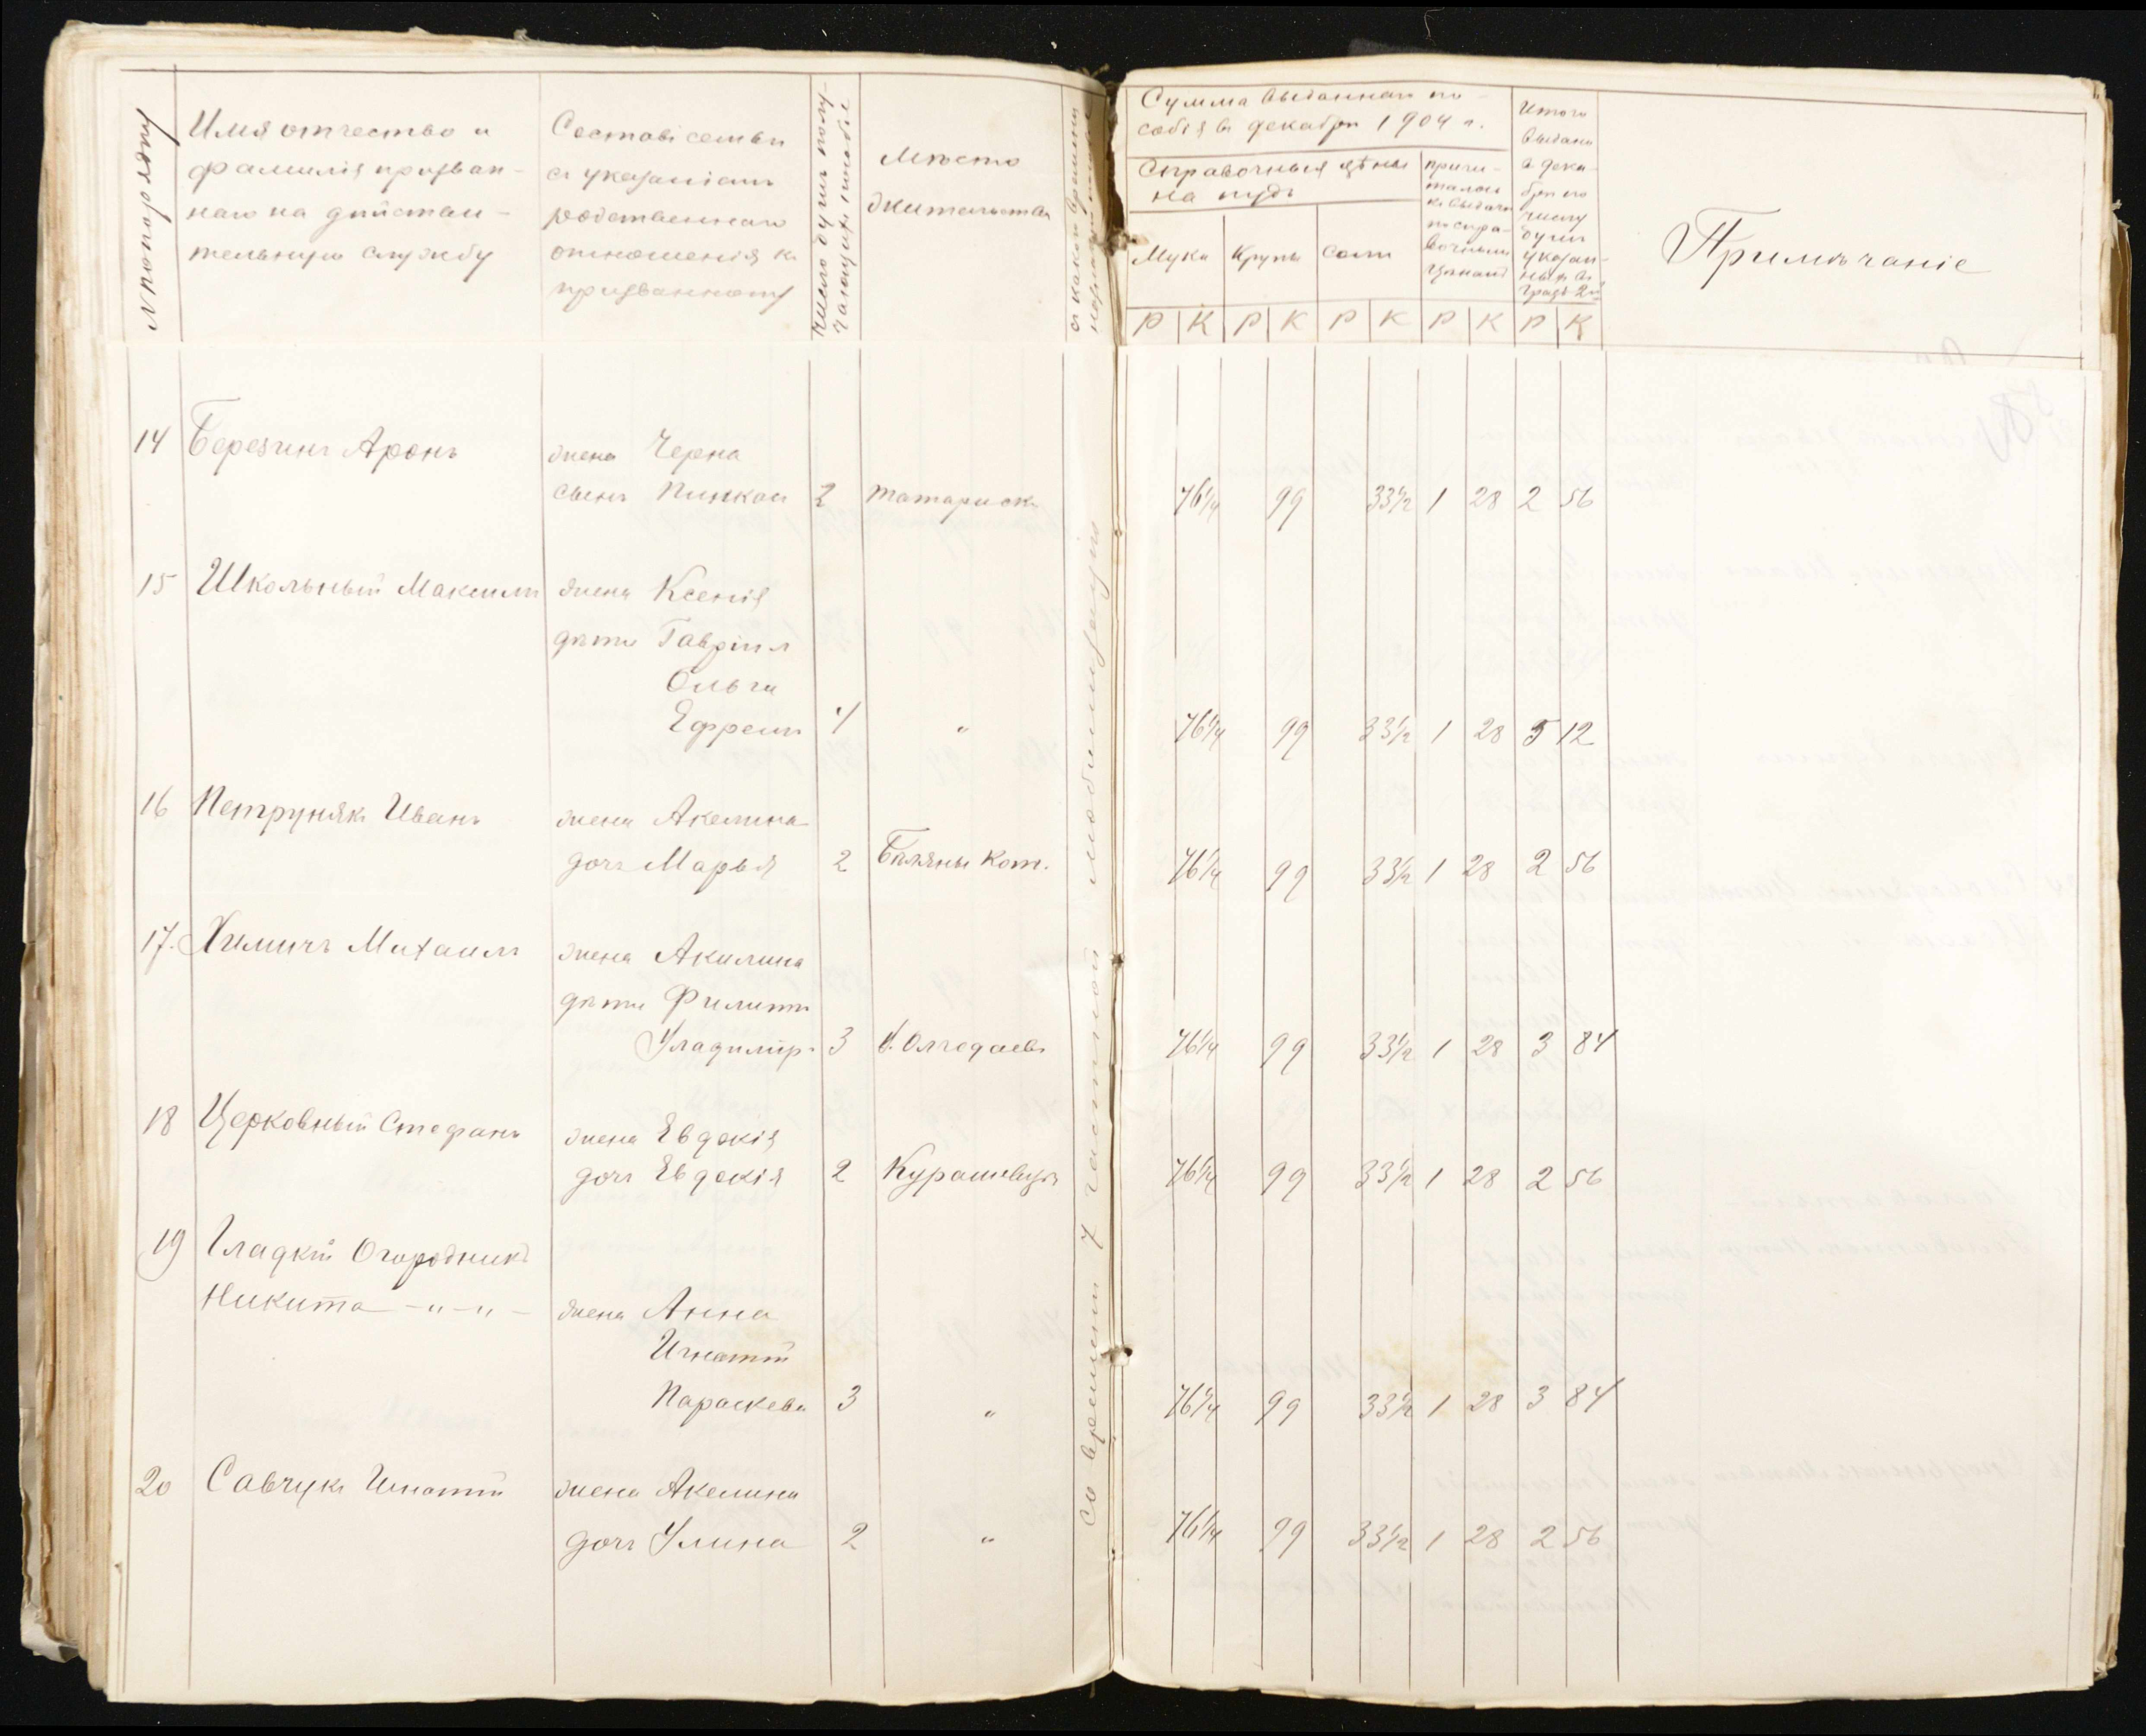 № по порядку
Имя отчество и
фамилія призван-
наго на дѣйстви-
тельную службу
Составъ семьи
съ указаніемъ
родственнаго
отношенія къ
призванному
Число душъ полу-
чающихъ пособіе
Мѣсто
жительства
съ какого времени
Сумма выданнаго по-
собія въ декабрѣ 1904 г.
Справочныя цѣны
на пудъ
Мука Крупы Соли
причи-
талось
къ выдачѣ
по спра-
вочнымъ
цѣнамъ
Итого
выдано
въ дека-
брѣ по
числу
душъ
указан-
ныхъ въ
графѣ 2й
Примѣчаніе
Р К Р К Р К Р К Р К
14 Березинъ Аронъ жена Черна
сынъ Пинкас 2 Татариски 76¼ 99 33½ 1 28 2 56
15 Школьный Максимъ жена Ксенія
дѣти Гавріил
Ольга
Ефремъ 4 " 76¼ 99 33½ 1 28 5 12
16 Петруняк Иванъ жена Акелина
дочь Марья 2 Биляны Кот. 76¼ 99 33½ 1 28 2 56
17. Химичъ Михаилъ жена Акилина
дѣти Филиппъ
Уладиміръ 3 В. Олчедаевъ 76¼ 99 33½ 1 28 3 84
18 Церковный Стефанъ жена Евдокія
дочь Евдокія 2 Курашевцы 76¼ 99 33½ 1 28 2 56
19 Гладкій Огородникъ
Никита — " — " — жена Анна
Игнатій
Параскева 3 " 76¼ 99 33½ 1 28 3 84
20 Савчукъ Игнатій жена Акелина
дочь Улина 2 " 76¼ 99 33½ 1 28 2 56
Со времени 7 частной мобилизаціи